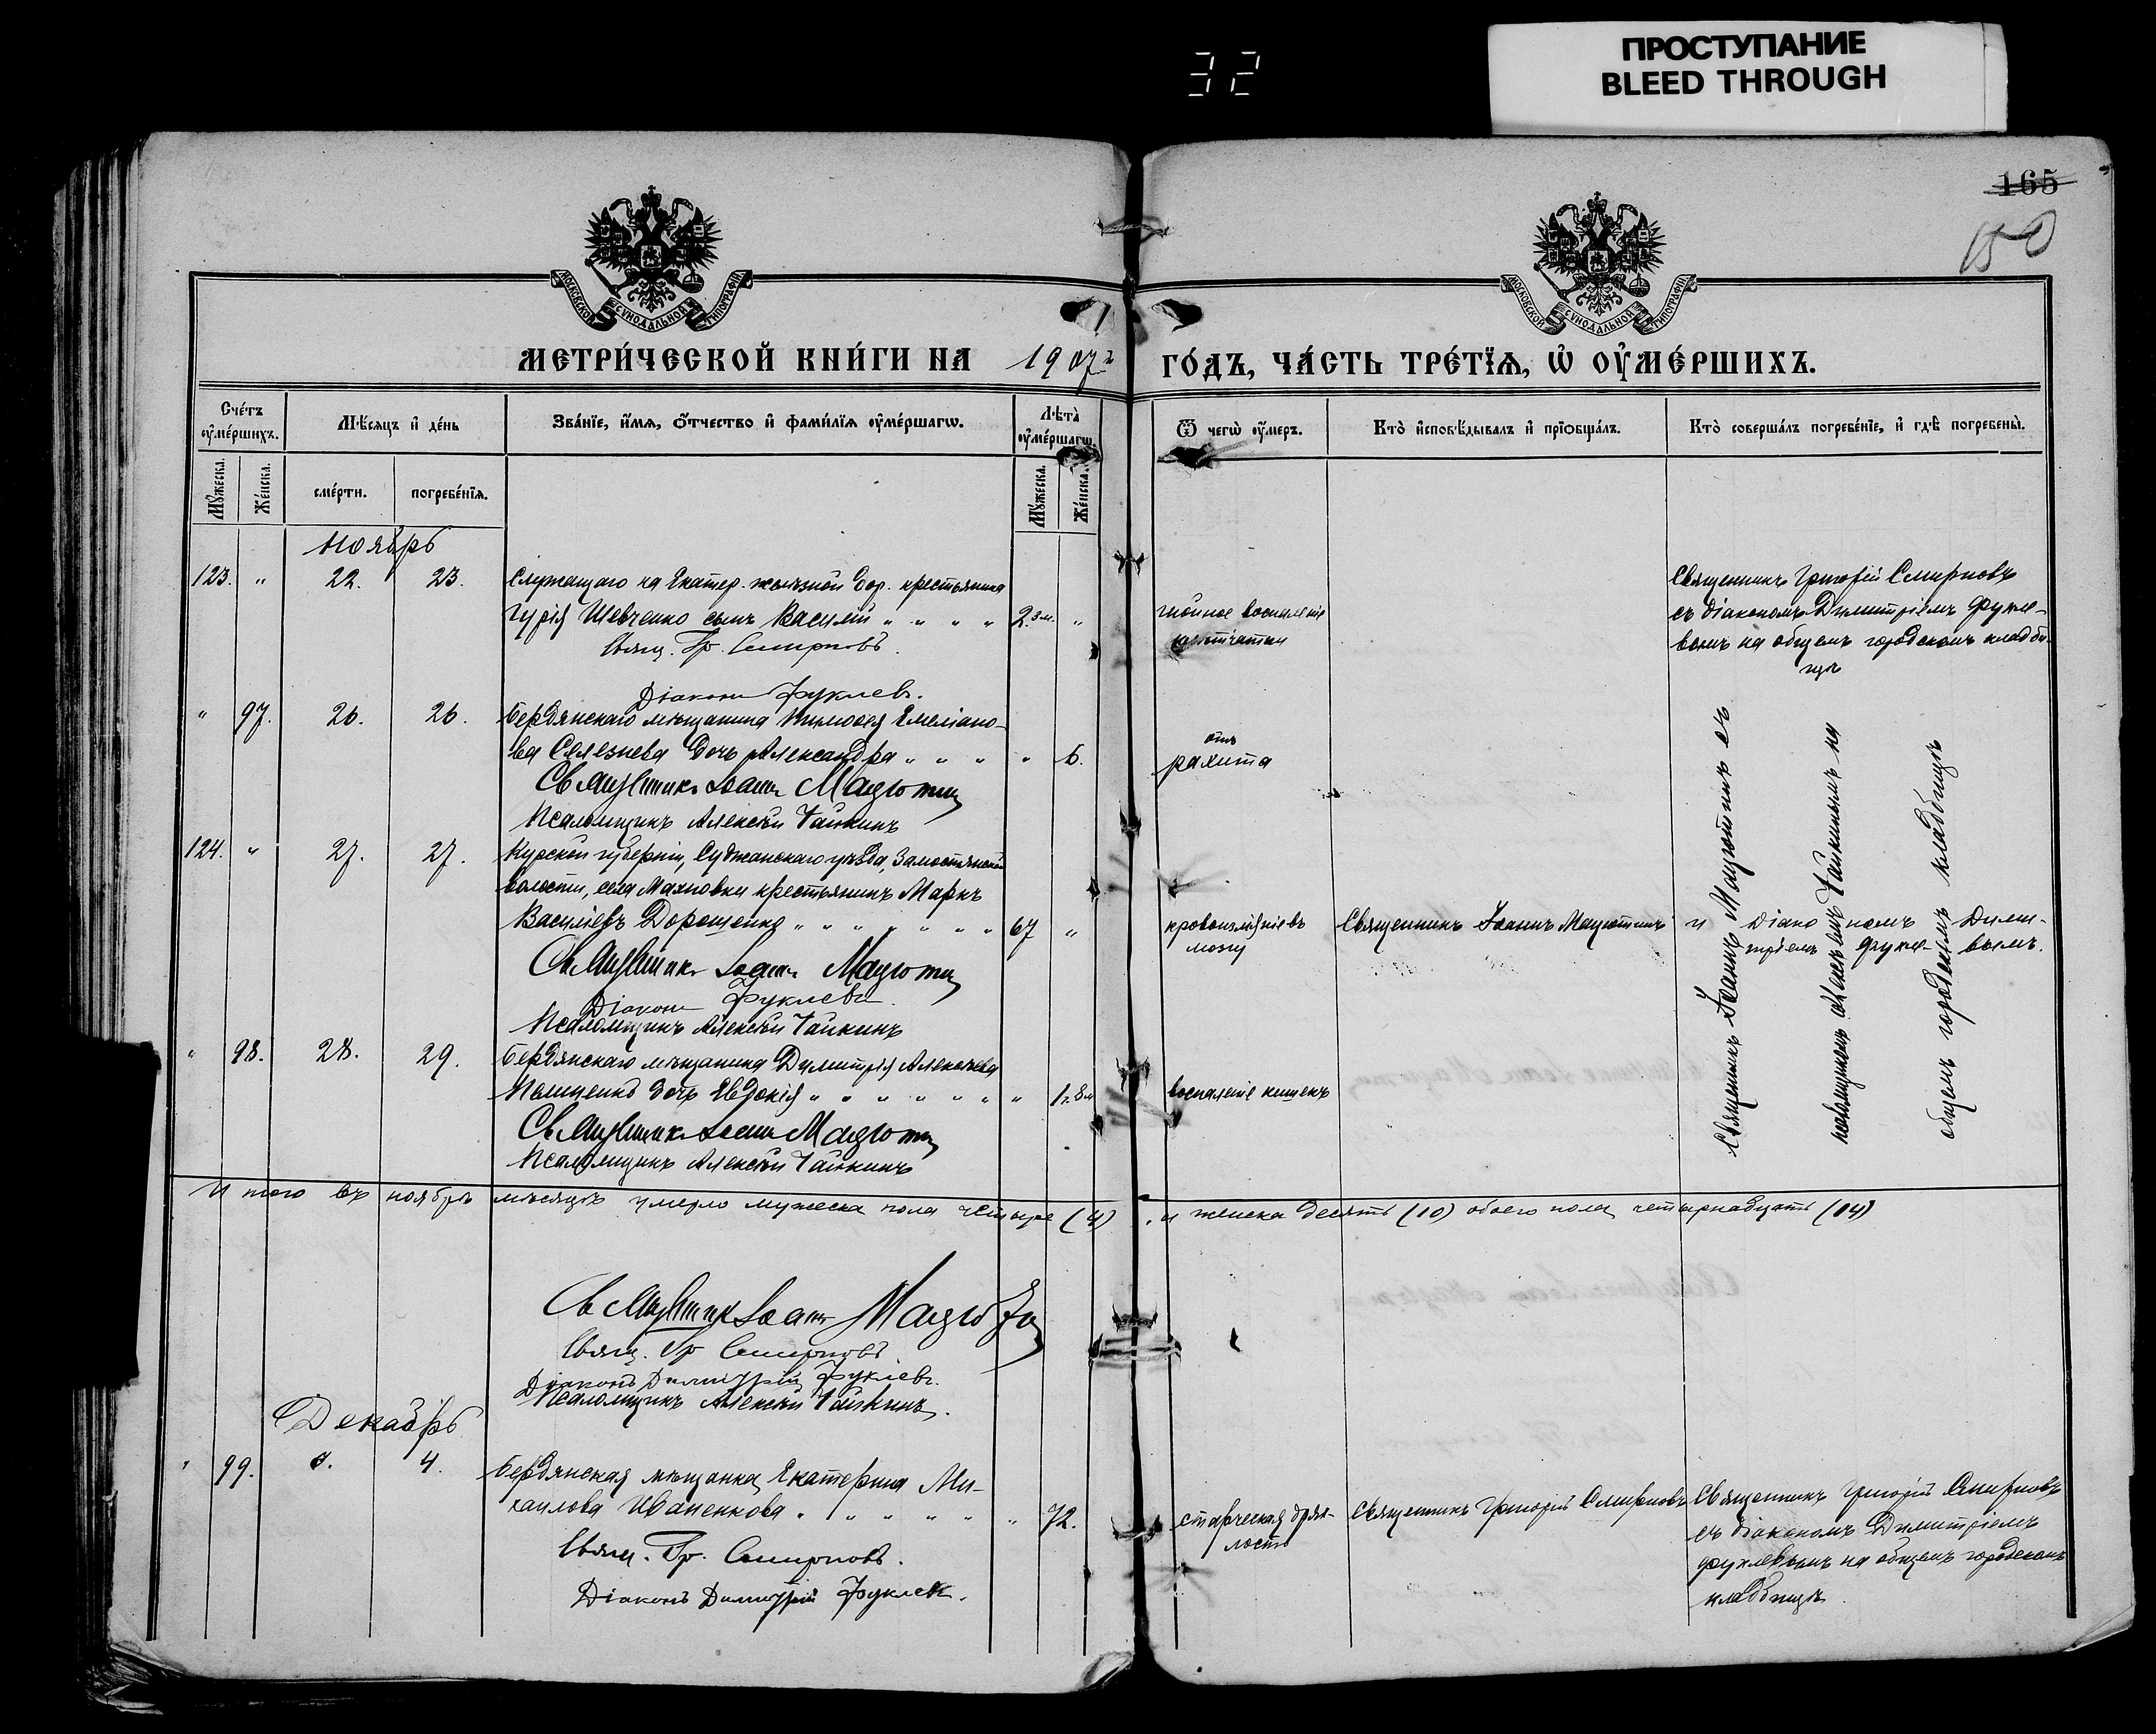 32
ПРОСТУПАНИЕ
BLEED THROUGH
165
150
МОСКОВСКОЙ СѴНОДАЛЬНОЙ ТИПОГРАФІИ
МОСКОВСКОЙ СѴНОДАЛЬНОЙ ТИПОГРАФІИ
МЕТРИ́ЧЕСКОЙ КНИ́ГИ НА 1907 г. ГО́ДЪ, ЧА́СТЬ ТРЕ́ТЇѦ, Ѡ҆ ОУ҆МЕ́РШИХЪ.
Сче́тъ оу҆ме́ршихъ.
Мѣ́сѧцъ и҆ де́нь
Зва́нїе, и҆́мѧ, ѻ҆́тчество и҆ фами́лїѧ оу҆ме́ршагѡ.
Лѣ́та̀ оу҆ме́ршагѡ.
Ѿ чегѡ̀ оу҆́меръ.
Кто̀ и҆сповѣ́дывалъ и҆ прїѡбща́лъ.
Кто̀ соверша́лъ погребе́нїе, и҆ гдѣ̀ погребены̀.
Мꙋ́жеска.
Же́нска.
сме́рти.
погребе́нїѧ.
Мꙋ́жеска.
Же́нска.
Ноябрь
123. " 22. 23. Служащаго на Екатер. желѣзной дор. крестьянина
Гурія Шевченко сынъ Василій " " " " 2. 3 м. "
Свящ. Гр. Смирновъ.
Діаконъ Фуклевъ.
гнойное воспаленіе
клѣтчатки
Священникъ Григорій Смирновъ
съ діакономъ Димитріемъ Фукле-
вымъ на общемъ городскомъ кладби-
щѣ
" 97. 26. 26. Бердянскаго мѣщанина Тимофея Емеліано-
ва Селезнева дочь Александра " " " " 6.
Священникъ Іоаннъ Мацютинъ
Псаломщикъ Алексѣй Чайкинъ
отъ
рахита
Священникъ Іоаннъ Мацютинъ съ
псаломщикомъ Алексѣемъ Чайкинымъ на
общемъ городскомъ кладбищѣ
124. " 27. 27. Курской губерніи, Суджанскаго уѣзда, Замостянской
волости, села Махновки крестьянинъ Маркъ
Василіевъ Дорошенко " " " " " " " 67 "
Священникъ Іоаннъ Мацютинъ
Діаконъ Фуклевъ.
Псаломщикъ Алексѣй Чайкинъ
кровоизліяніе въ
мозгу
Священникъ Іоаннъ Мацютинъ
и Діакономъ Дими-
тріемъ Фукле-вымъ.
" 98. 28. 29. Бердянскаго мѣщанина Димитрія Алексѣева
дочь Евдокія " " " " " " " 1 г. 8 м
Священникъ Іоаннъ Мацютинъ
Псаломщикъ Алексѣй Чайкинъ
воспаленіе кишекъ
Итого въ ноябрѣ мѣсяцѣ умерло мужеска пола четыре (4) и женска десять (10) обоего пола четырнадцать (14)
Священникъ Іоаннъ Мацютинъ
Свящ. Гр Смирновъ
Діаконъ Димитрій Фуклевъ.
Псаломщикъ Алексѣй Чайкинъ.
Декабрь
" 99. 4. Бердянская мѣщанка Екатерина Ми-
хаилова Иваненкова " " " " " " 72.
Свящ. Гр. Смирновъ.
Діаконъ Димитрій Фуклевъ.
старческая дрях-
лость
Священникъ Григорій Смирновъ
Священникъ Григорій Смирновъ
съ діакономъ Димитріемъ
Фуклевымъ на общемъ городскомъ
кладбищѣ.